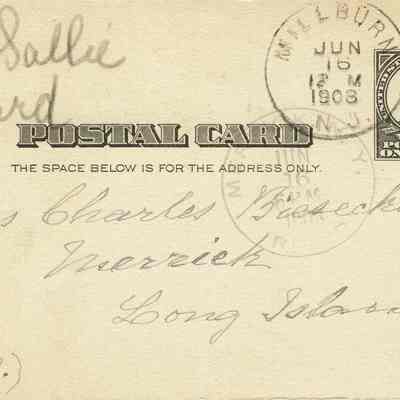 Sallie
ard
MILLBURN
JUN
16
12 M
1908
N.J.
POSTAL CARD
THE SPACE BELOW IS FOR THE ADDRESS ONLY.
s Charles
Merrick
Long Island